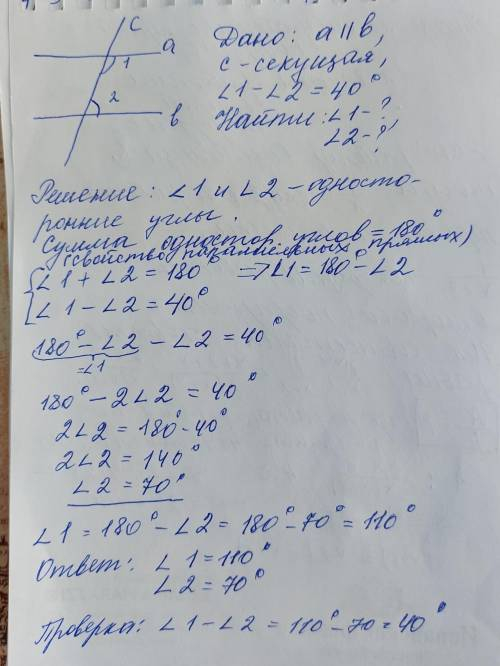 c
a
1
2
b
Дано: a || b,
c - секущая,
∠1 - ∠2 = 40°
Найти: ∠1 - ?
∠2 - ?
Решение: ∠1 и ∠2 - односто-
ронние углы.
Сумма одностор. углов = 180°
(свойство параллельных прямых)
{ ∠1 + ∠2 = 180° => ∠1 = 180° - ∠2
∠1 - ∠2 = 40°
180° - ∠2 - ∠2 = 40°
=∠1
180° - 2∠2 = 40°
2∠2 = 180° - 40°
2∠2 = 140°
∠2 = 70°
∠1 = 180° - ∠2 = 180° - 70° = 110°
Ответ: ∠1 = 110°
∠2 = 70°
Проверка: ∠1 - ∠2 = 110° - 70 = 40°